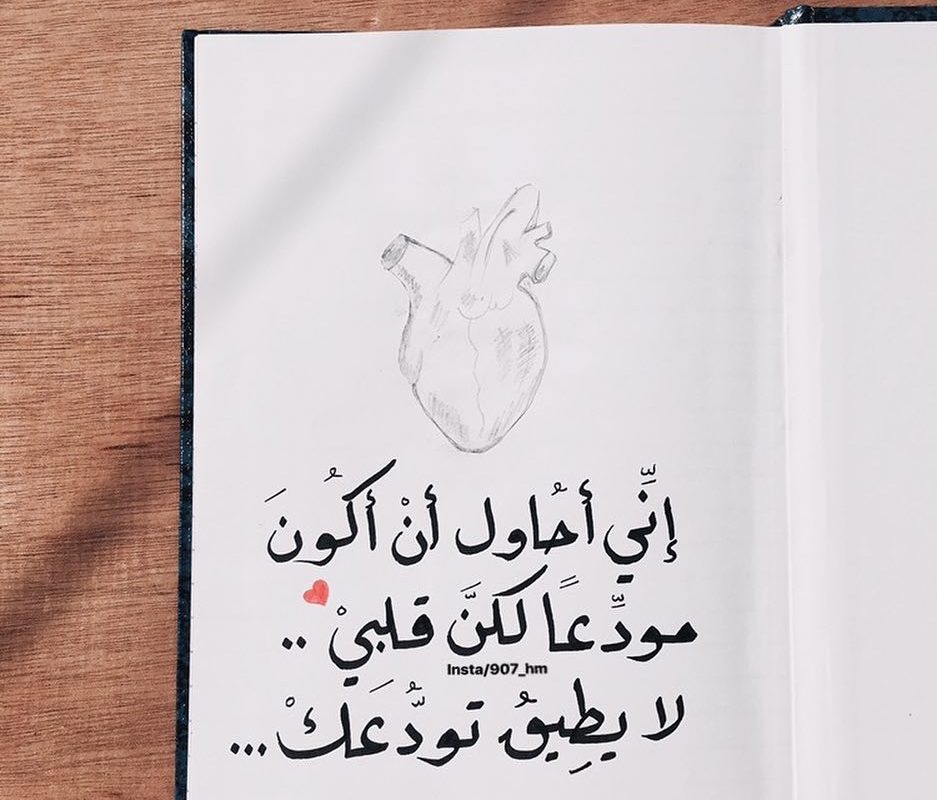 إنِّي أحُاول أنْ أكُونَ
مودِّعاً لكنَّ قلبيْ ..
Insta/907_hm
لا يطِيقُ تودُّعَكْ...